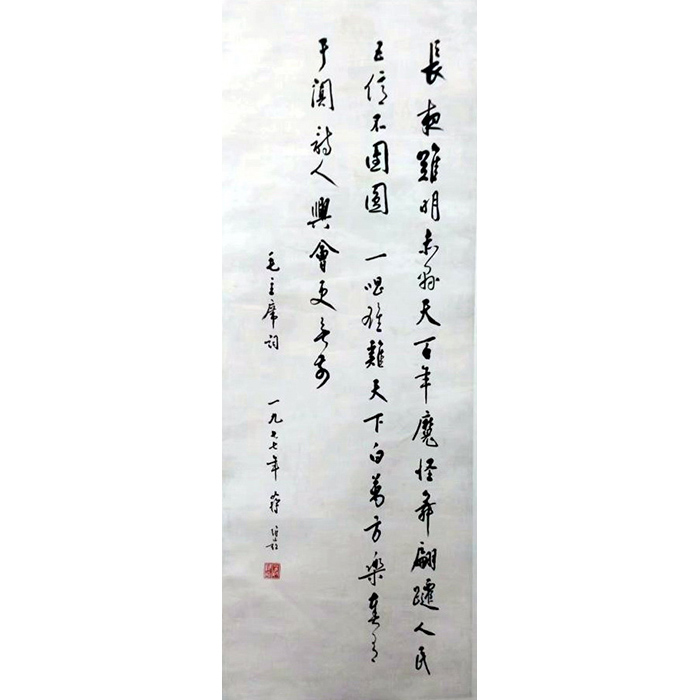 長夜難明赤縣天百年魔怪舞翩躚人民
五億不團圓 一唱雄雞天下白萬方樂奏有
于闐詩人興會更无前
毛主席詞 一九七七年